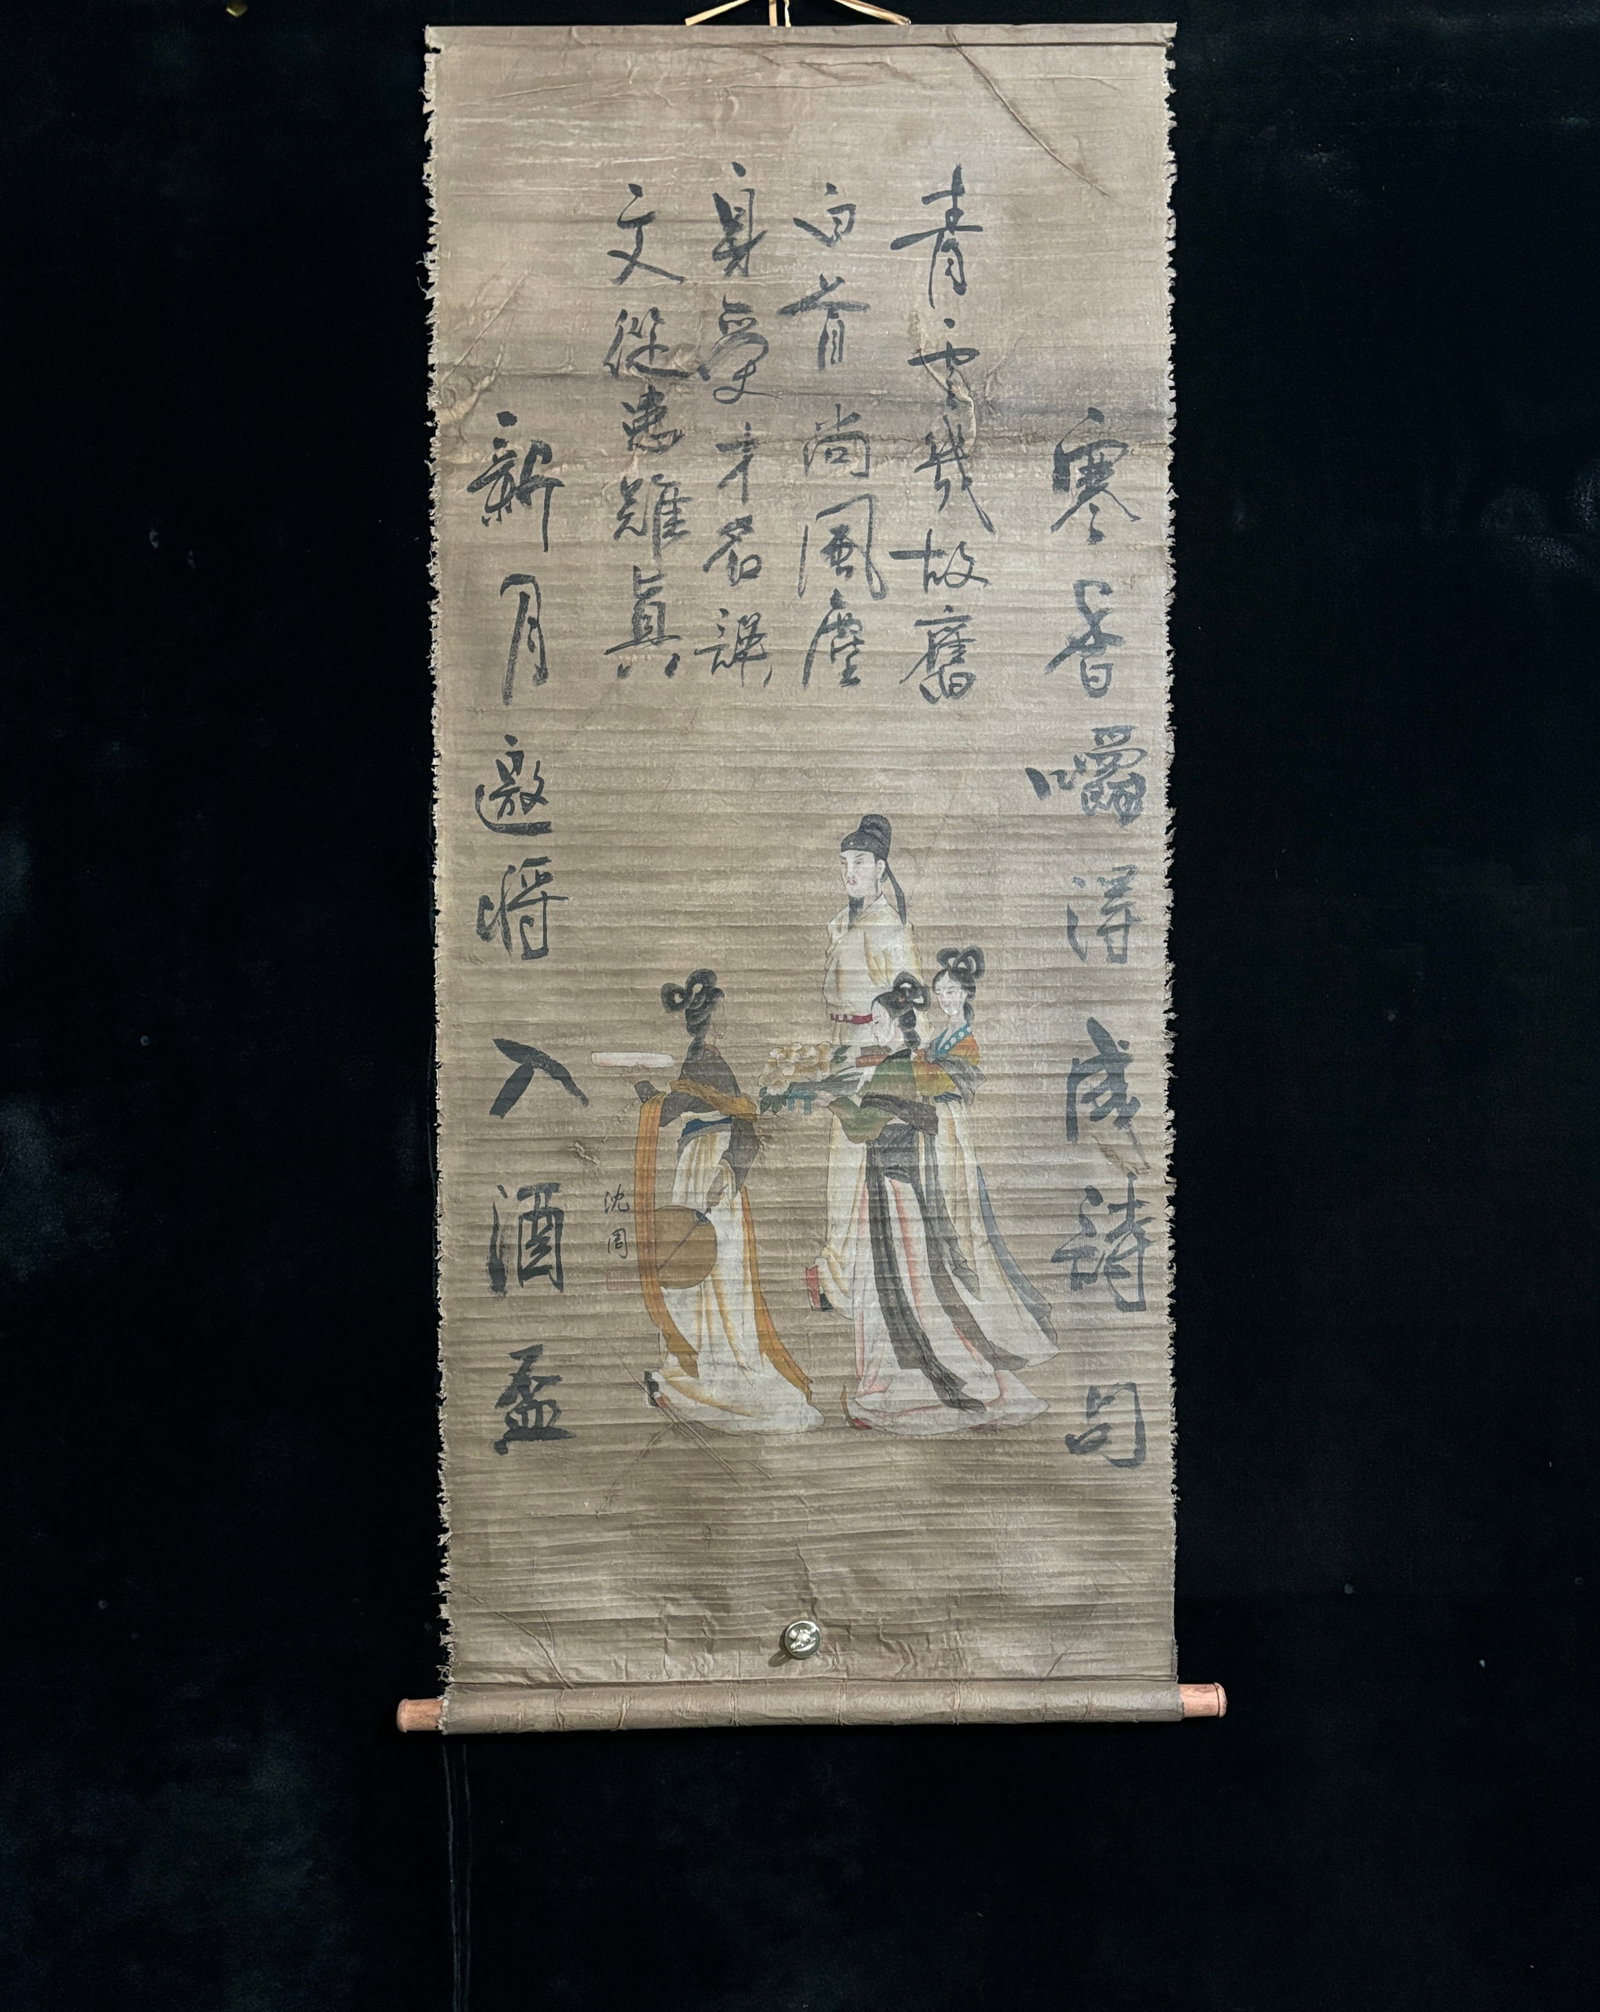 寒香嚼得成詩句
青雲幾故舊
白首尚風塵
身受才名誤
文從患難真
新月邀將入酒盃
沈周